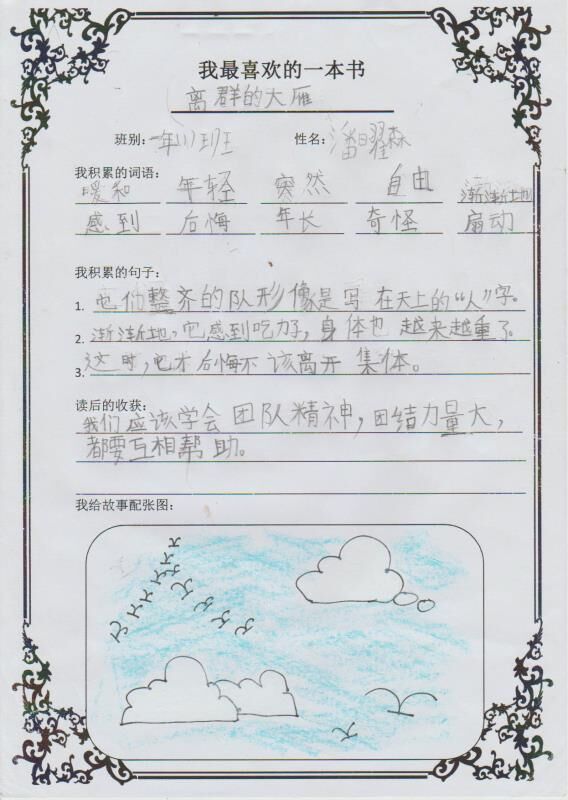 我最喜欢的一本书
离群的大雁
班别：一年(1)班 姓名：潘曜森
我积累的词语：
暖和 年轻 突然 自由 渐渐地
感到 后悔 年长 奇怪 扇动
我积累的句子：
1. 它们整齐的队形像是写在天上的“人”字。
2. 渐渐地，它感到吃力了，身体也越来越重了。
3. 这时，它才后悔不该离开集体。
读后的收获：
我们应该学会团队精神，团结力量大，
都要互相帮助。
我给故事配张图：